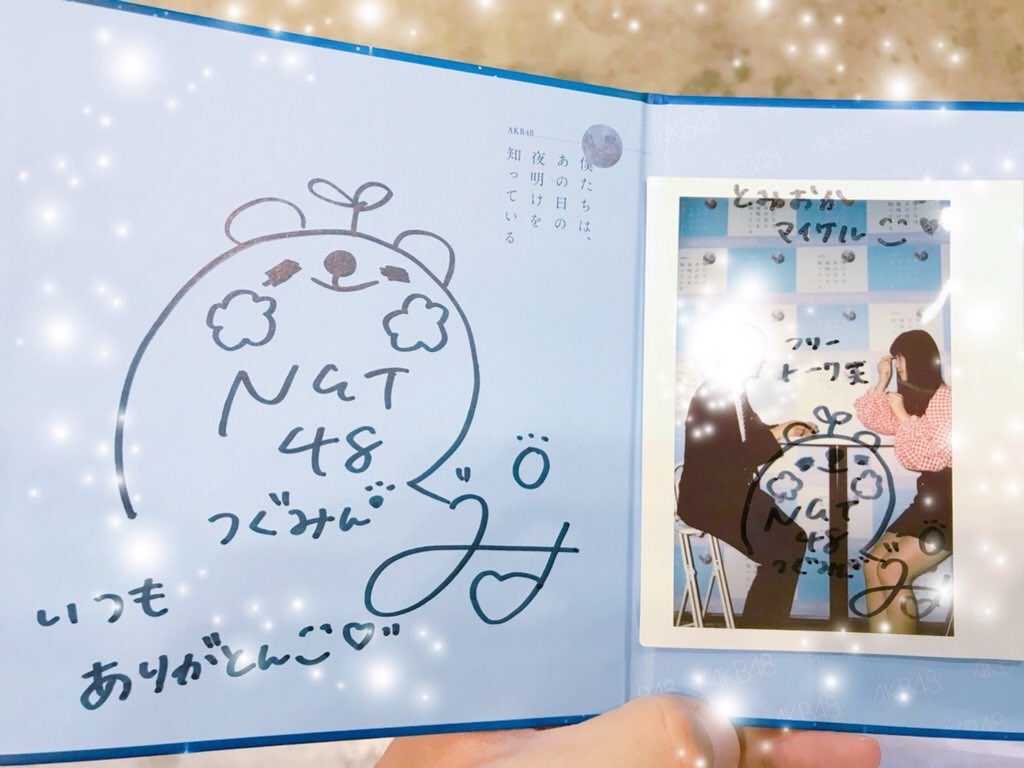 AKB48
僕たちは、
あの日の
夜明けを
知っている
NGT
48
つぐみん
いつも
ありがとんこ♡
とみおか
マイケル
フリー
トーク笑
NGT
48
つぐみん
AKB48
AKB48
AKB48
AKB48